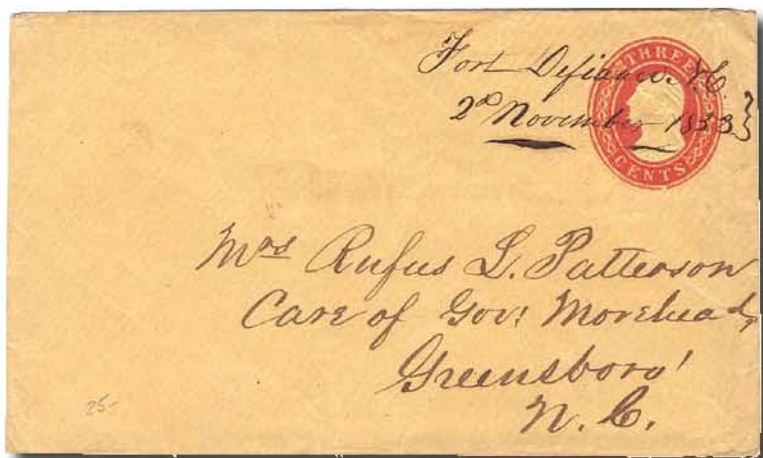 Fort Defiance N.C.
2d November 1853
THREE
CENTS
Mrs Rufus L. Patterson
Care of Gov: Morehead,
Greensboro'
N. C.
25-